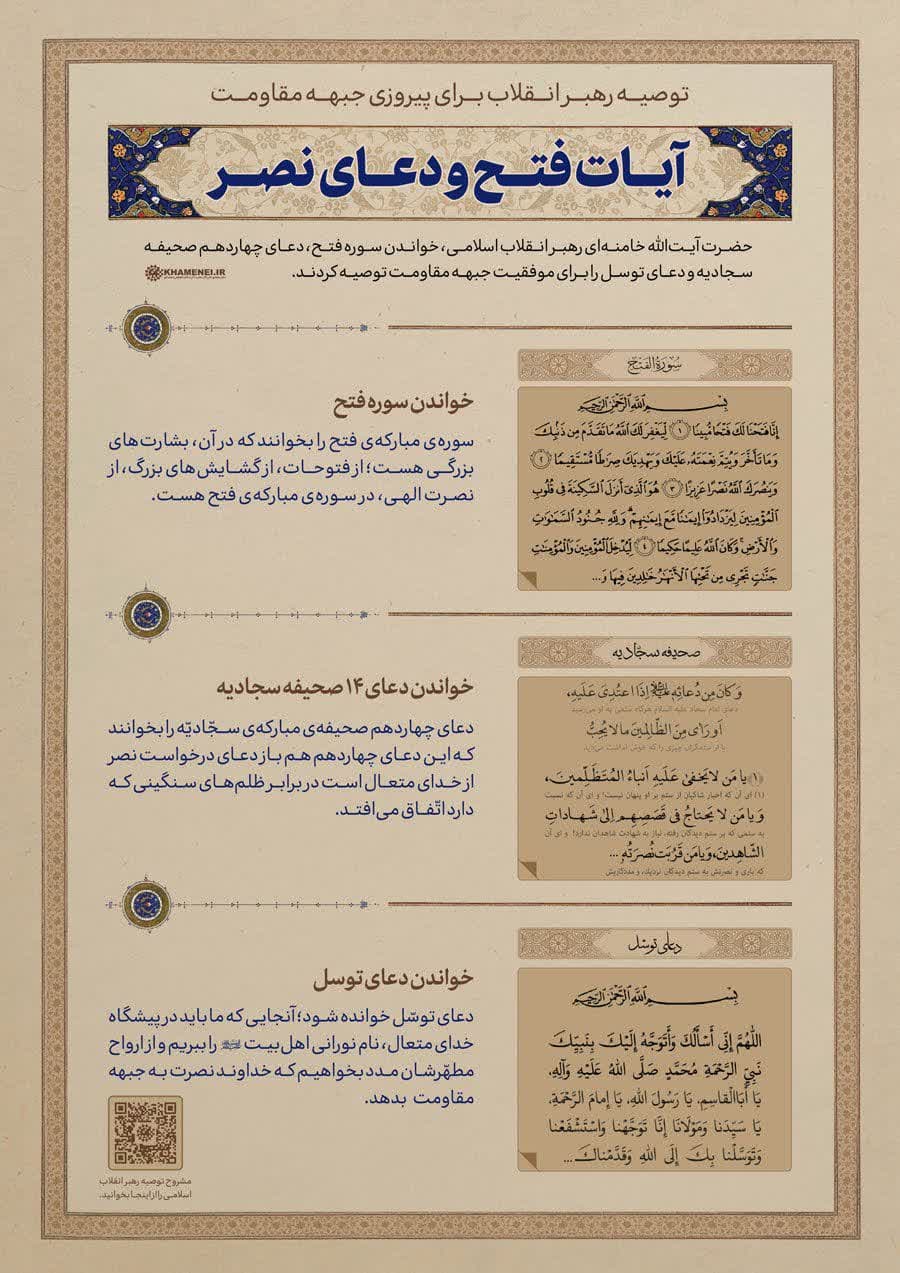 توصیه رهبر انقلاب برای پیروزی جبهه مقاومت
آیات فتح و دعای نصر
حضرت آیت‌الله خامنه‌ای رهبر انقلاب اسلامی، خواندن سوره فتح، دعای چهاردهم صحیفه
سجادیه و دعای توسل را برای موفقیت جبهه مقاومت توصیه کردند.
KHAMENEI.IR
سُورَةُ الفَتْح
بِسْمِ اللَّهِ الرَّحْمَٰنِ الرَّحِيمِ
إِنَّا فَتَحْنَا لَكَ فَتْحًا مُبِينًا ﴿١﴾ لِيَغْفِرَ لَكَ اللَّهُ مَا تَقَدَّمَ مِن ذَنْبِكَ
وَمَا تَأَخَّرَ وَيُتِمَّ نِعْمَتَهُ عَلَيْكَ وَيَهْدِيَكَ صِرَاطًا مُسْتَقِيمًا ﴿٢﴾
وَيَنْصُرَكَ اللَّهُ نَصْرًا عَزِيزًا ﴿٣﴾ هُوَ الَّذِي أَنْزَلَ السَّكِينَةَ فِي قُلُوبِ
الْمُؤْمِنِينَ لِيَزْدَادُوا إِيمَانًا مَعَ إِيمَانِهِمْ ۗ وَلِلَّهِ جُنُودُ السَّمَاوَاتِ
وَالْأَرْضِ ۚ وَكَانَ اللَّهُ عَلِيمًا حَكِيمًا ﴿٤﴾ لِيُدْخِلَ الْمُؤْمِنِينَ وَالْمُؤْمِنَاتِ
جَنَّاتٍ تَجْرِي مِن تَحْتِهَا الْأَنْهَارُ خَالِدِينَ فِيهَا وَ...
خواندن سوره فتح
سوره‌ی مبارکه‌ی فتح را بخوانند که در آن، بشارت‌های
بزرگی هست؛ از فتوحات، از گشایش‌های بزرگ، از
نصرت الهی، در سوره‌ی مبارکه‌ی فتح هست.
صحیفه سجادیه
وَ كَانَ مِن دُعائِهِ ﷺ إِذَا اعْتُدِيَ عَلَيْهِ،
دعای امام سجاد علیه السلام هرگاه ستمی به او می‌رسید
أَوْ رَأى مِنَ الظّالِمينَ ما لا يُحِبُّ
یا از ستمکاران چیزی را که خوش نداشت می‌دید
﴿١﴾ يا مَن لا يَخفىٰ عَلَيهِ أَنباءُ المُتَظَلِّمينَ،
(۱) ای آن که اخبار شاکیان از ستم بر او پنهان نیست! و ای آن که نسبت
وَ يا مَن لا يَحتاجُ في قَصَصِهِم إِلىٰ شَهاداتِ
به ستمی که بر ستم دیدگان رفته، نیاز به شهادت شاهدان ندارد! و ای آن
الشّاهِدينَ، وَ يا مَن قَرُبَت نُصرَتُهُ ...
که یاری و نصرتش به ستم دیدگان نزدیک، و مددکاریش
خواندن دعای ۱۴ صحیفه سجادیه
دعای چهاردهم صحیفه‌ی مبارکه‌ی سجّادیّه را بخوانند
که این دعای چهاردهم هم باز دعای درخواست نصر
از خدای متعال است در برابر ظلم‌های سنگینی که
دارد اتّفاق می‌افتد.
دعای توسل
بِسْمِ اللَّهِ الرَّحْمَٰنِ الرَّحِيمِ
اللّٰهُمَّ إِنِّي أَسْأَلُكَ وَأَتَوَجَّهُ إِلَيْكَ بِنَبِيِّكَ
نَبِيِّ الرَّحْمَةِ مُحَمَّدٍ صَلَّى اللهُ عَلَيْهِ وَآلِهِ،
يَا أَبَا الْقَاسِمِ، يَا رَسُولَ اللهِ، يَا إِمَامَ الرَّحْمَةِ،
يَا سَيِّدَنَا وَمَوْلَانَا إِنَّا تَوَجَّهْنَا وَاسْتَشْفَعْنَا
وَتَوَسَّلْنَا بِكَ إِلَى اللهِ وَقَدَّمْنَاكَ ...
خواندن دعای توسل
دعای توسّل خوانده شود؛ آنجایی که ما باید در پیشگاه
خدای متعال، نام نورانی اهل‌بیت را ببریم و از ارواح
مطهّرشان مدد بخواهیم که خداوند نصرت به جبهه
مقاومت بدهد.
مشروح توصیه رهبر انقلاب
اسلامی را از اینجا بخوانید.